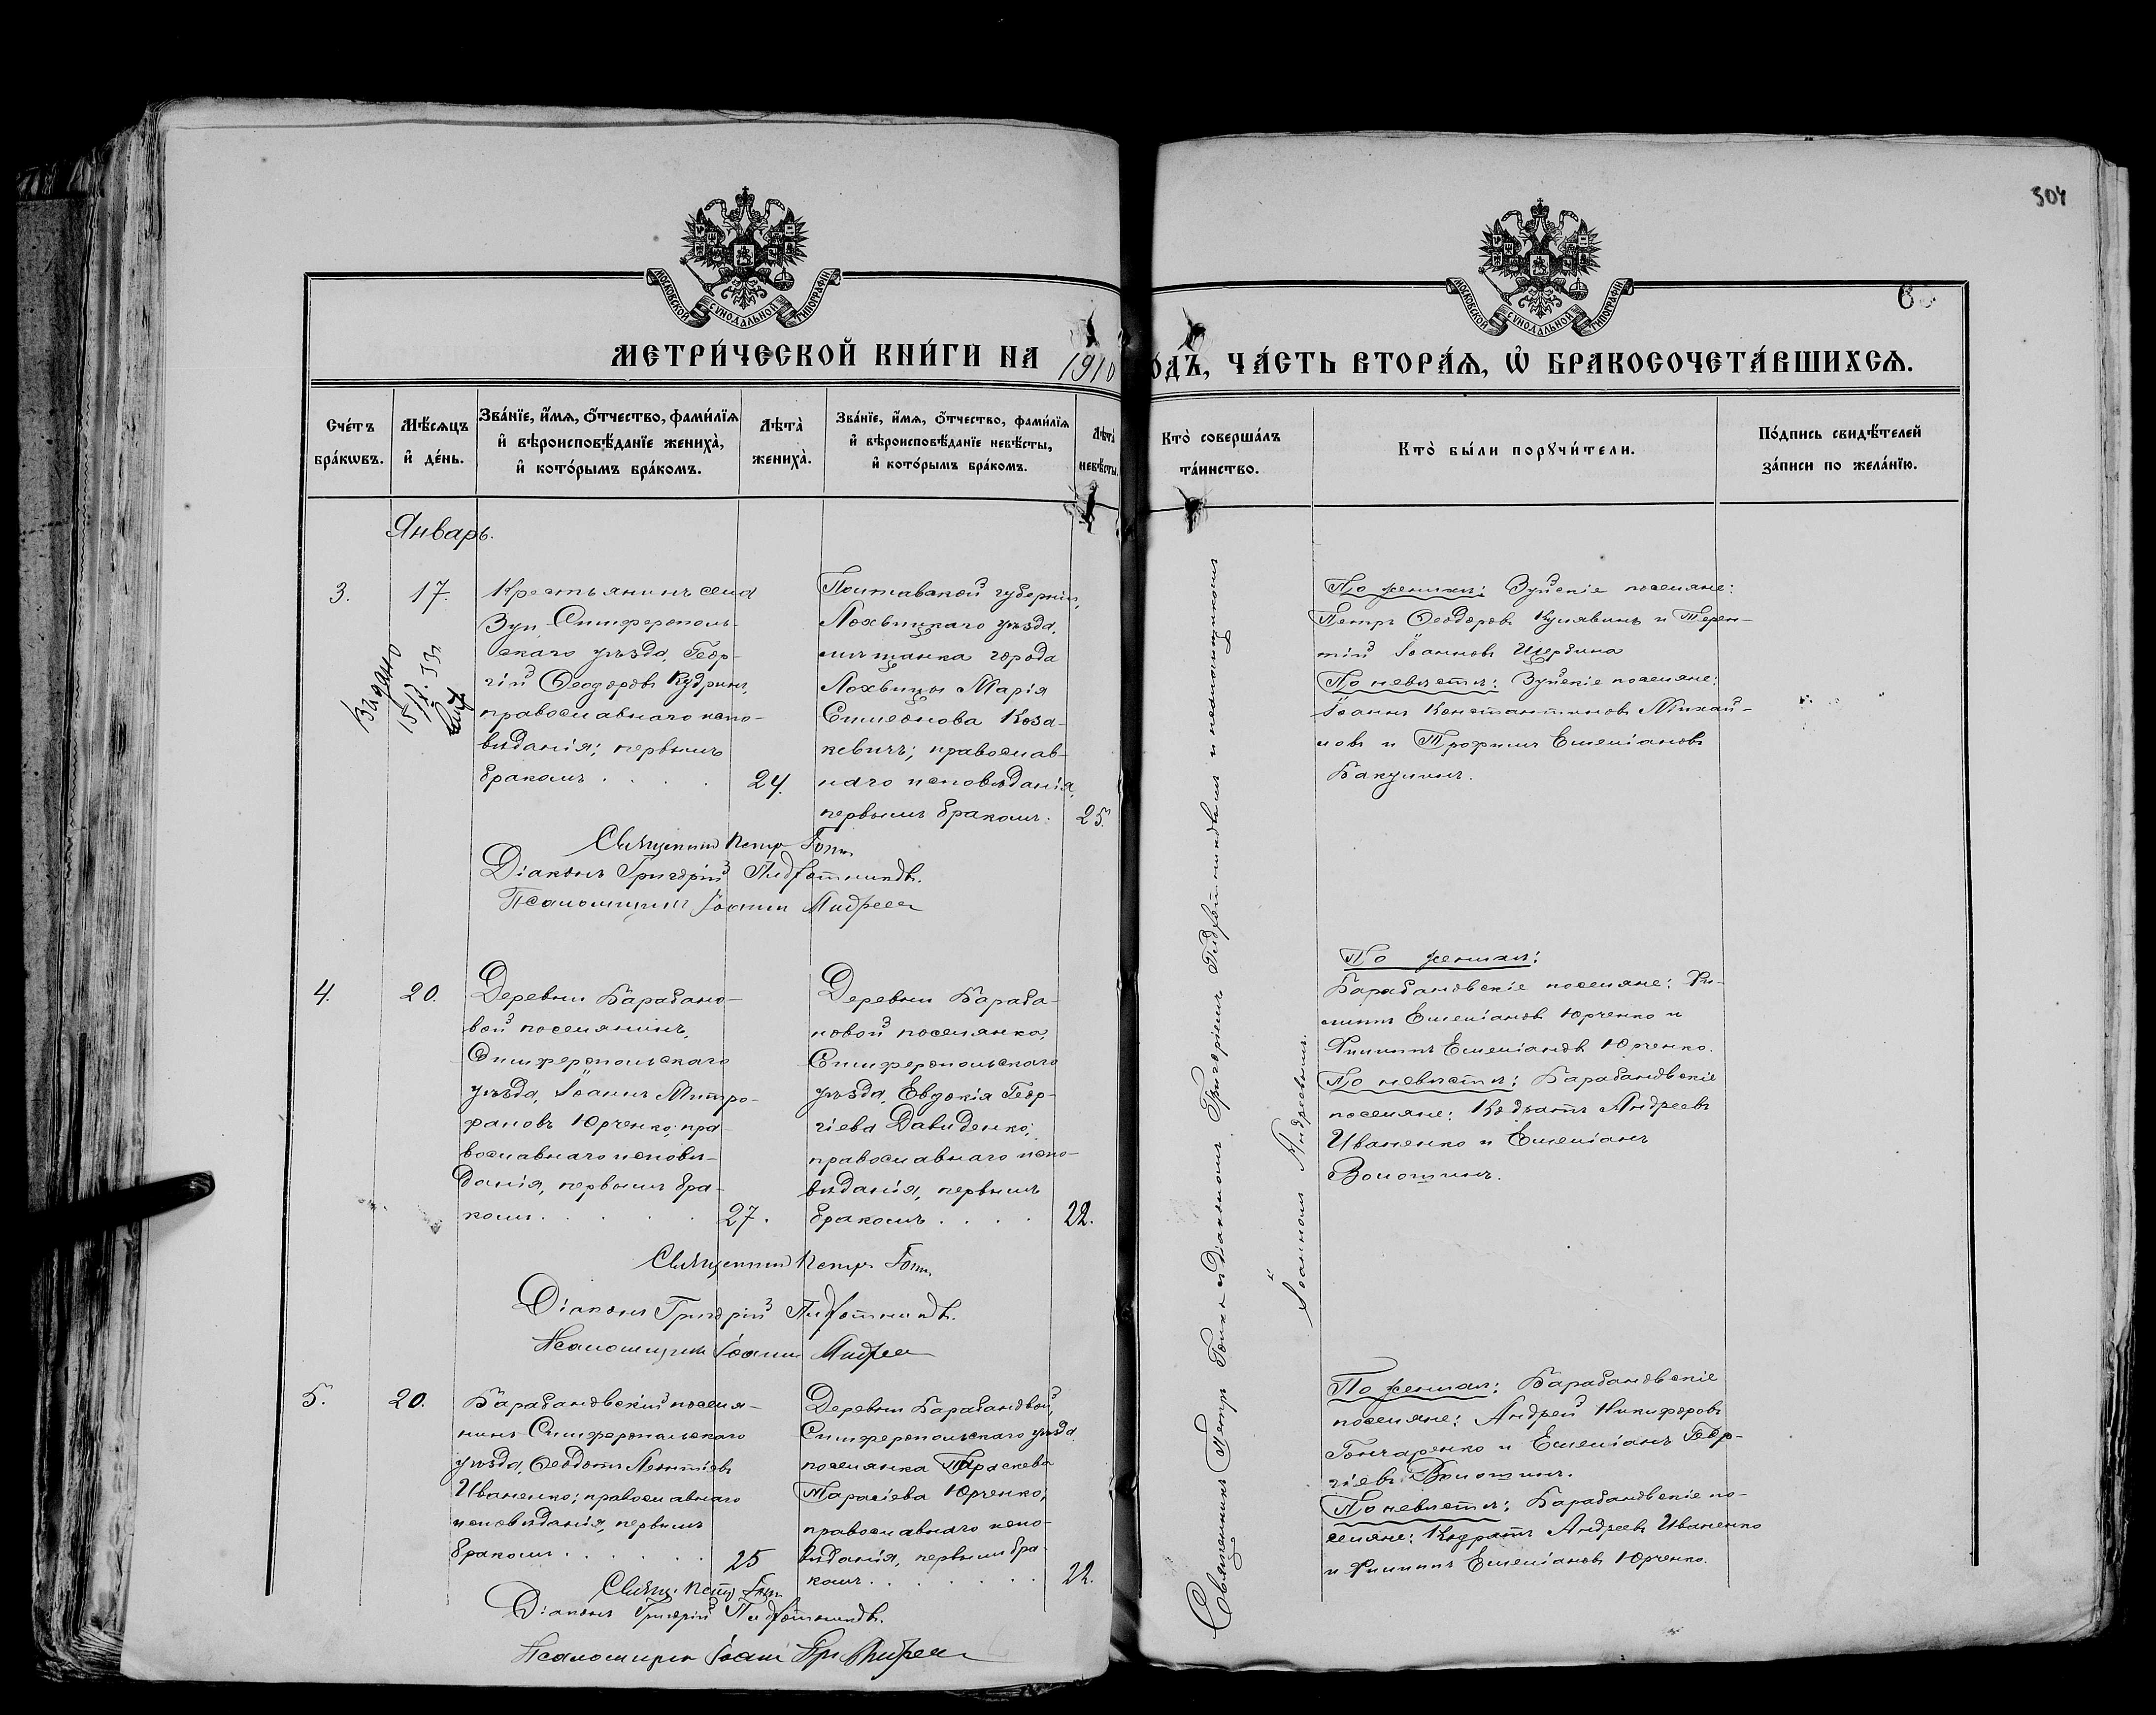 304
МОСКОВСКОЙ СѴНОДАЛЬНОЙ ТИПОГРАФІИ
МОСКОВСКОЙ СѴНОДАЛЬНОЙ ТИПОГРАФІИ
МЕТРИ́ЧЕСКОЙ КНИ́ГИ НА 1910
ОДЪ, ЧА́СТЬ ВТОРА́Ѧ, Ѽ БРАКОСОЧЕТА́ВШИХСѦ.
Сче́тъ бра́кѡвъ.
Мѣ́сѧцъ и҆ де́нь.
Зва́нїе, и҆́мѧ, ѻ҆́тчество, фами́лїѧ
и҆ вѣроисповѣ́данїе жениха̀,
и҆ кото́рымъ бра́комъ.
Лѣта̀ жениха̀.
Зва́нїе, и҆́мѧ, ѻ҆́тчество, фами́лїѧ
и҆ вѣроисповѣ́данїе невѣ́сты,
и҆ кото́рымъ бра́комъ.
Лѣта̀ невѣ́сты.
Кто̀ соверша́лъ та́инство.
Кто̀ бы́ли порꙋчи́тели.
По́дпись свидѣ́телей за́писи по жела́нїю.
Январь.
3.
17.
Выдано
Крестьянинъ села
Зуи, Симферополь-
скаго уѣзда, Геор-
гій Ѳеодоровъ Кудринъ,
православнаго испо-
вѣданія; первымъ
бракомъ . . . .
24.
Полтавской губерніи,
Лохвицкаго уѣзда,
мѣщанка города
Лохвицы Марія
Симеонова Коза-
кевичъ; православ-
наго исповѣданія,
первымъ бракомъ.
25.
По женихѣ: Зуйскіе поселяне:
Петръ Ѳеодоровъ Кулявинъ и Терен-
тій Іоанновъ Щербина
По невѣстѣ: Зуйскіе поселяне:
Іоаннъ Константиновъ Михай-
ловъ и Трофимъ Емеліановъ
Бакулинъ.
Священникъ Петръ
Діаконъ Григорій
Псаломщикъ Іоаннъ Андреев
4.
20.
Деревни Барабано-
вой поселянинъ,
Симферопольскаго
уѣзда, Іоаннъ Митро-
фановъ Юрченко; пра-
вославнаго исповѣ-
данія, первымъ бра-
комъ . . . . .
27.
Деревни Бараба-
новой поселянка,
Симферопольскаго
уѣзда, Евдокія Геор-
гіева Давиденко;
православнаго испо-
вѣданія, первымъ
бракомъ . . . .
22.
По женихѣ:
Барабановскіе поселяне: Фи-
липпъ Емеліановъ Юрченко и
Филиппъ Емеліановъ Юрченко.
По невѣстѣ: Барабановскіе
поселяне: Кодратъ Андреевъ
Иваненко и Емеліанъ
Волошинъ.
Священникъ Петръ
Діаконъ Григорій
Псаломщикъ Іоаннъ Андреев
5.
20.
Барабановскій поселя-
нинъ Симферопольскаго
уѣзда, Ѳеодотъ Леонтіевъ
Иваненко; православнаго
исповѣданія, первымъ
бракомъ . . . . . .
25
Деревни Барабановой,
Симферопольскаго уѣзда
поселянка Параскева
Тарасіева Юрченко;
православнаго испо-
вѣданія, первымъ бра-
комъ . . . . . .
22.
По женихѣ: Барабановскіе
поселяне: Андрей Никифоровъ
Гончаренко и Емеліанъ Геор-
гіевъ Волошинъ.
По невѣстѣ: Барабановскіе по-
селяне: Кодратъ Андреевъ Иваненко
и Филиппъ Емеліановъ Юрченко.
Діаконъ Григорій
Псаломщикъ Іоаннъ
Священникъ Петръ и Діакономъ Григоріемъ и псаломщикомъ
Іоанномъ Андреевымъ.